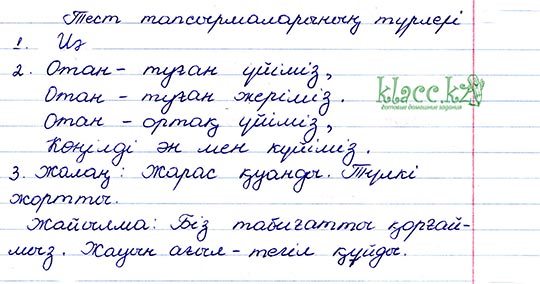 Тест тапсырмаларының түрлері
1. Из
2. Отан - туған үйіміз,
Отан - туған жеріміз.
Отан - ортақ үйіміз,
Көңілді ән мен күйіміз.
3. Жалаң: Жарас қуанды. Түлкі
жортты.
Жайылма: Біз табиғатты қорғай-
мыз. Жауын ағыл - тегіл құйды.
klacc.kz
готовые домашние задания